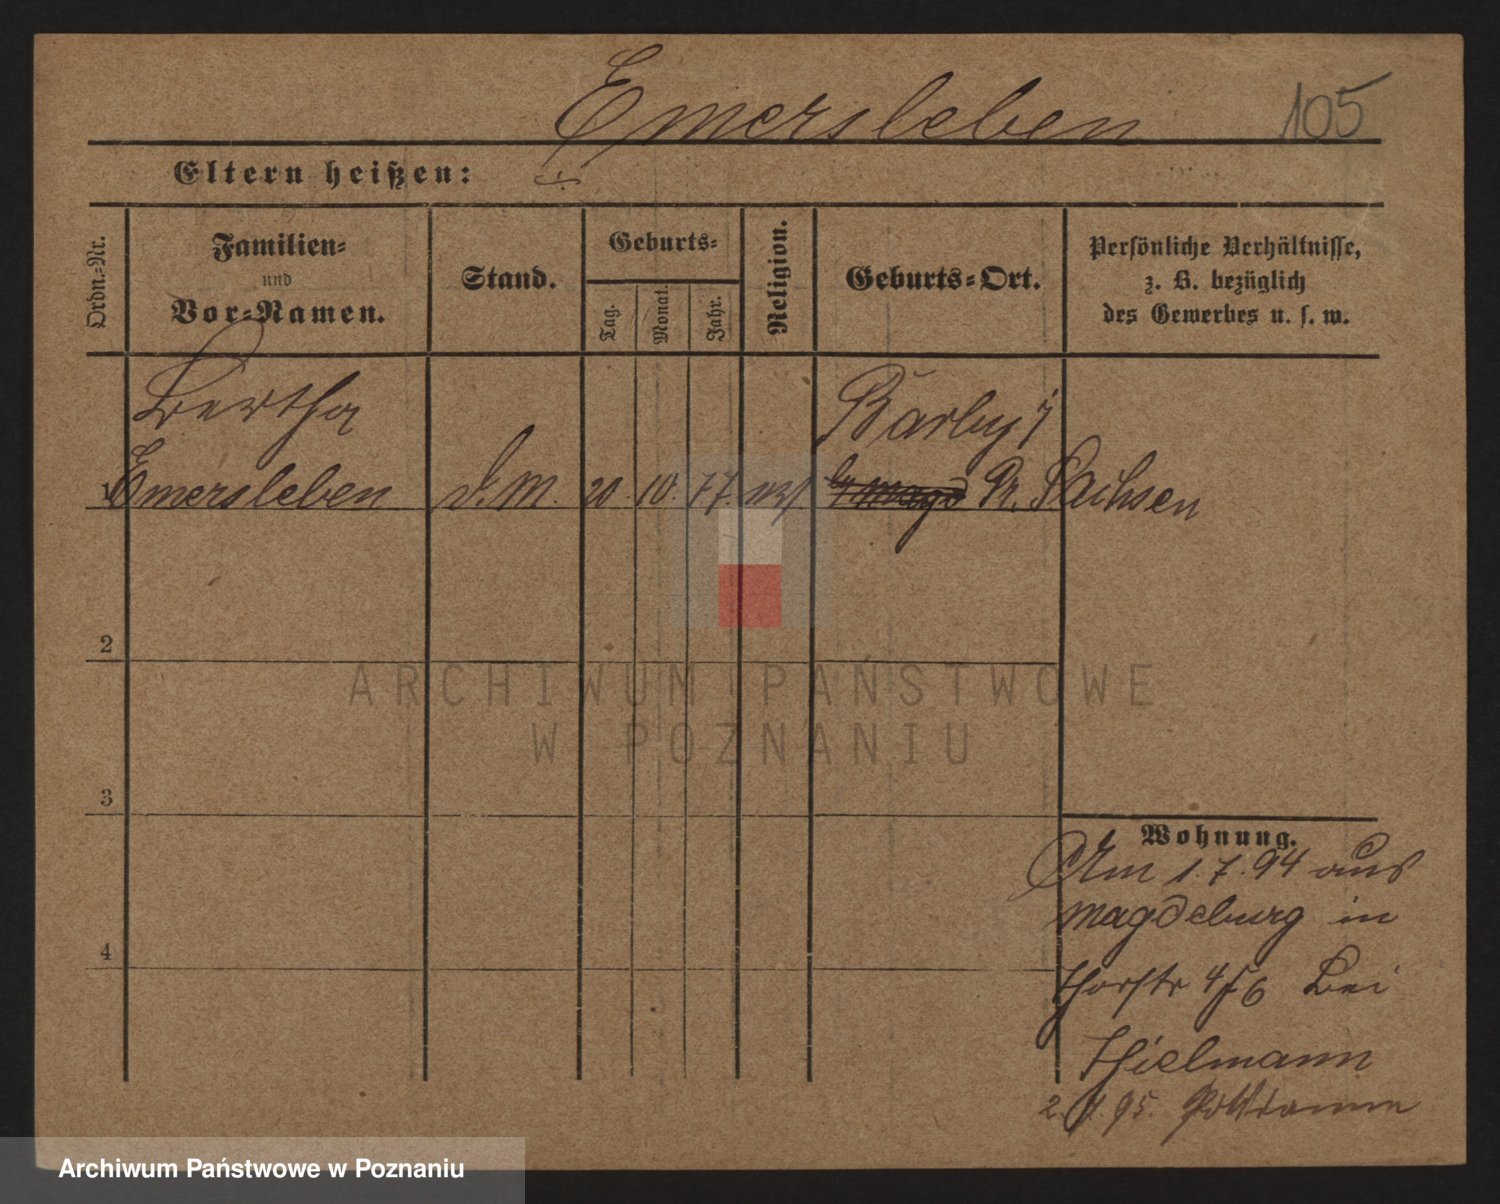 Emersleben
105
Eltern heißen:
Ordn.-Nr.
Familien-
und
Vor-Namen.
Stand.
Geburts-
Tag.
Monat.
Jahr.
Religion.
Geburts-Ort.
Persönliche Verhältnisse,
z. B. bezüglich
des Gewerbes u. s. w.
Bertha
Barby
1 Emersleben d. M. 20. 10. 77. Pr. Sachsen
2
3
4
Wohnung.
Am 1.7.94 aus
Magdeburg in
Thorstr 4/5 6 bei
Thielmann
95.
ARCHIWUM PAŃSTWOWE
W POZNANIU
Archiwum Państwowe w Poznaniu